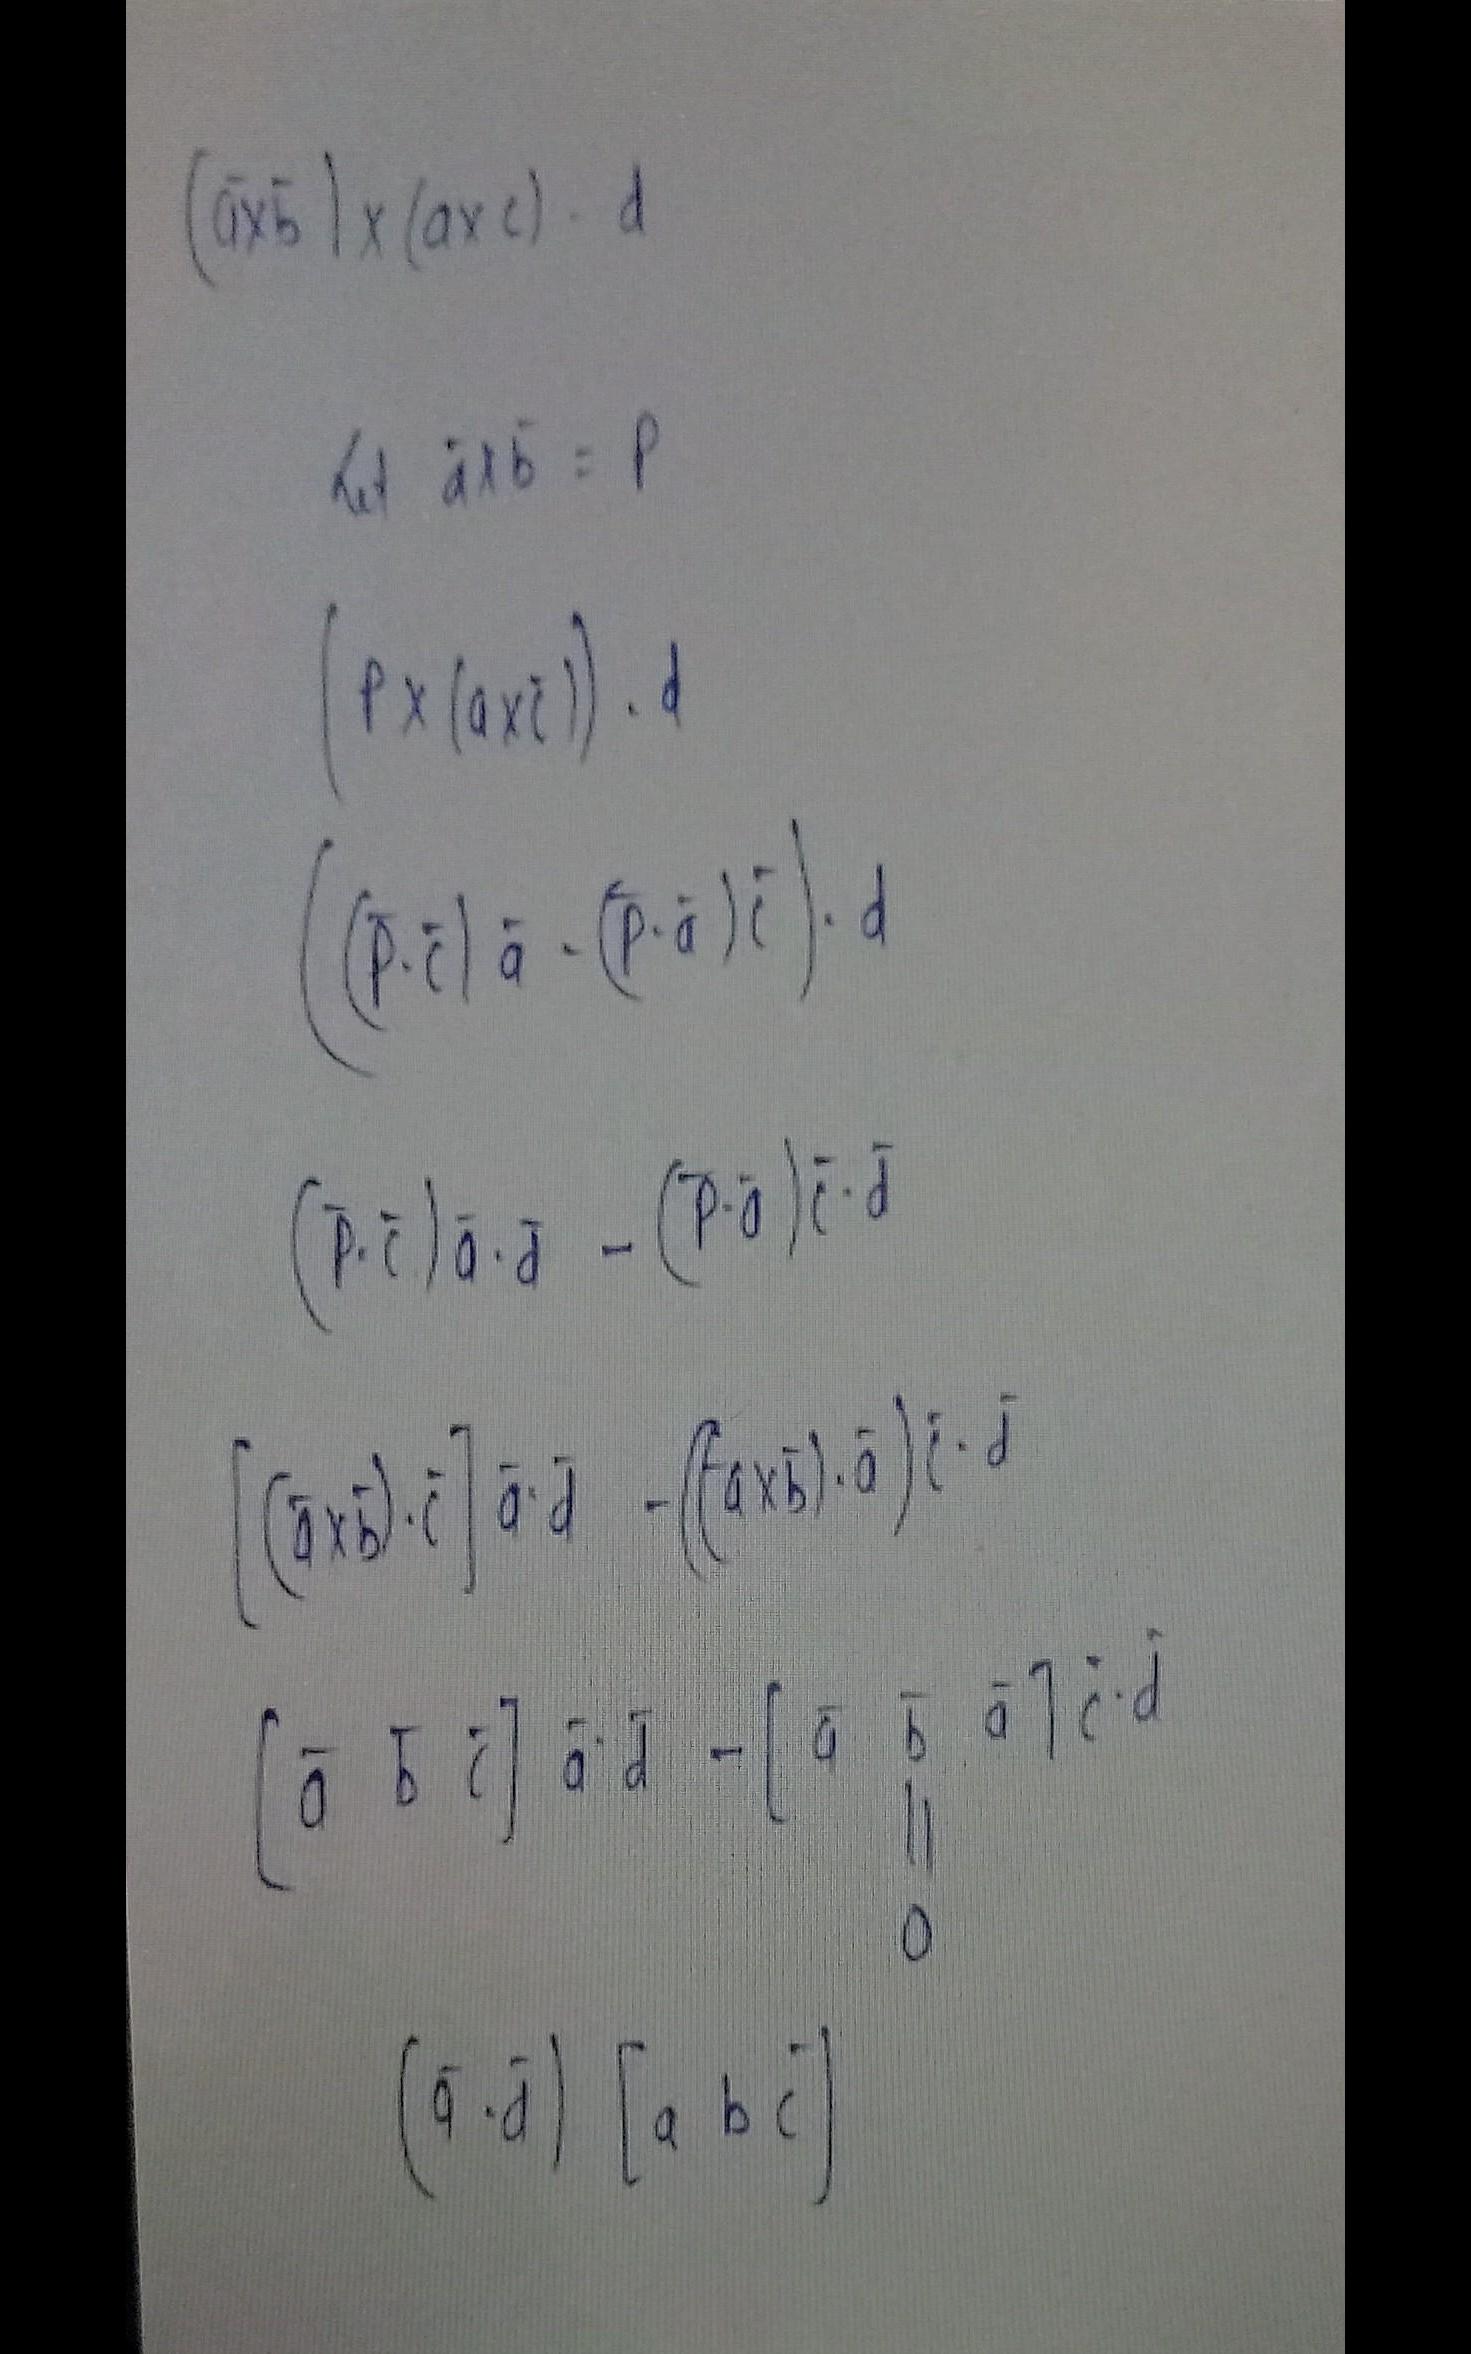 (a̅×b̅)×(a×c)·d
Let a̅×b̅ = P
(P×(a×c̅))·d
((p̅·c̅)a̅ - (p̅·a̅)c̅)·d
(p̅·c̅)a̅·d̅ - (p̅·a̅)c̅·d̅
[(a̅×b̅)·c̅]a̅·d̅ - ((a×b̅)·a̅)c̅·d̅
[a̅ b̅ c̅] a̅·d̅ - [a̅ b̅ a̅] c̅·d̅
||
0
(a̅·d̅) [a b c̅]